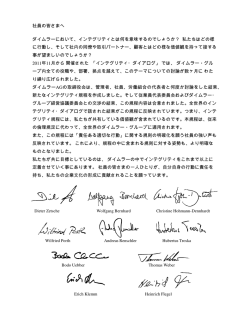 社員の皆さまへ
ダイムラーにおいて、インテグリティとは何を意味するのでしょうか? 私たちはどの様
に行動し、そして社内の同僚や取引パートナー、顧客とはどの様な価値観を持って接する
事が望ましいのでしょうか?
2011年11月から開催された 「インテグリティ・ダイアログ」では、ダイムラー・グルー
プ内全ての役職や、部署、拠点を超えて、このテーマについての討論が数ヶ月に
り繰り広げられました。
ダイムラーAGの取締役会は、管理者、社員、労働組合の代表者と何度か討論した結果、
新たなインテグリティ規範を作成しました。そして従業員代表委員会およびダイムラー・
グループ経営協議委員会との交渉の結果、この規程内容は合意されました。全世界のイン
テグリティ・ダイアログで得られた
インテグリティ規程には、私たちが共有している価値観が含まれています。本規程は、従来
の倫理規定に代わって、全世界のダイムラー・グループに適用されます。
また、この規程には「責任ある適切な行動」に関する規則の明確化を願う社員の強い声も
反映されています。これにより、規程の中に含まれる原則に対する姿勢も、より明確な
ものとなりました。
私たちが共に目標としているのは、ダイムラーの中でインテグリティをこれまで以上に
定着させていく事にあります。社員の皆さまの一人ひとりが、自分自身の行動に責任を
持ち、私たちの企業文化の形成に貢献されることを願っています。
Dieter Zetsche Wolfgang Bernhard Christine Hohmann-Dennhardt
Wilfried Porth Andreas Renschler Hubertus Troska
Bodo Uebber Thomas Weber
Erich Klemm Heinrich Flegel